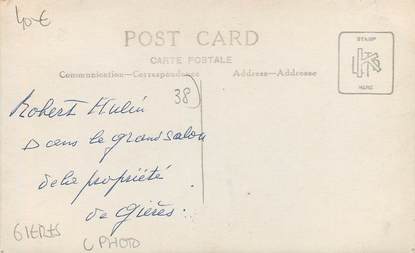 40€
POST CARD
CARTE POSTALE
Communication—Correspondence
Address—Adresse
STAMP
HERE
38
Robert Hulin
Dans le grand salon
de la propriété
de Gières.
GIERES
C PHOTO